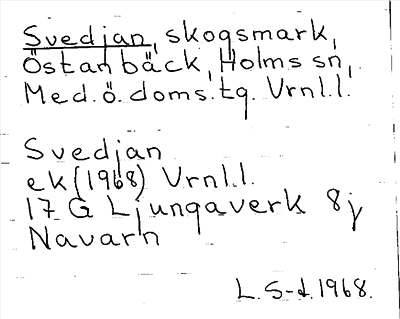 Svedjan, skogsmark,
Östanbäck, Holms sn,
Med.ö.doms.tg. Vrnl.l.
Svedjan
ek (1968) Vrnl.l.
17 G Ljungaverk 8j
Navarn
L.S-d.1968.